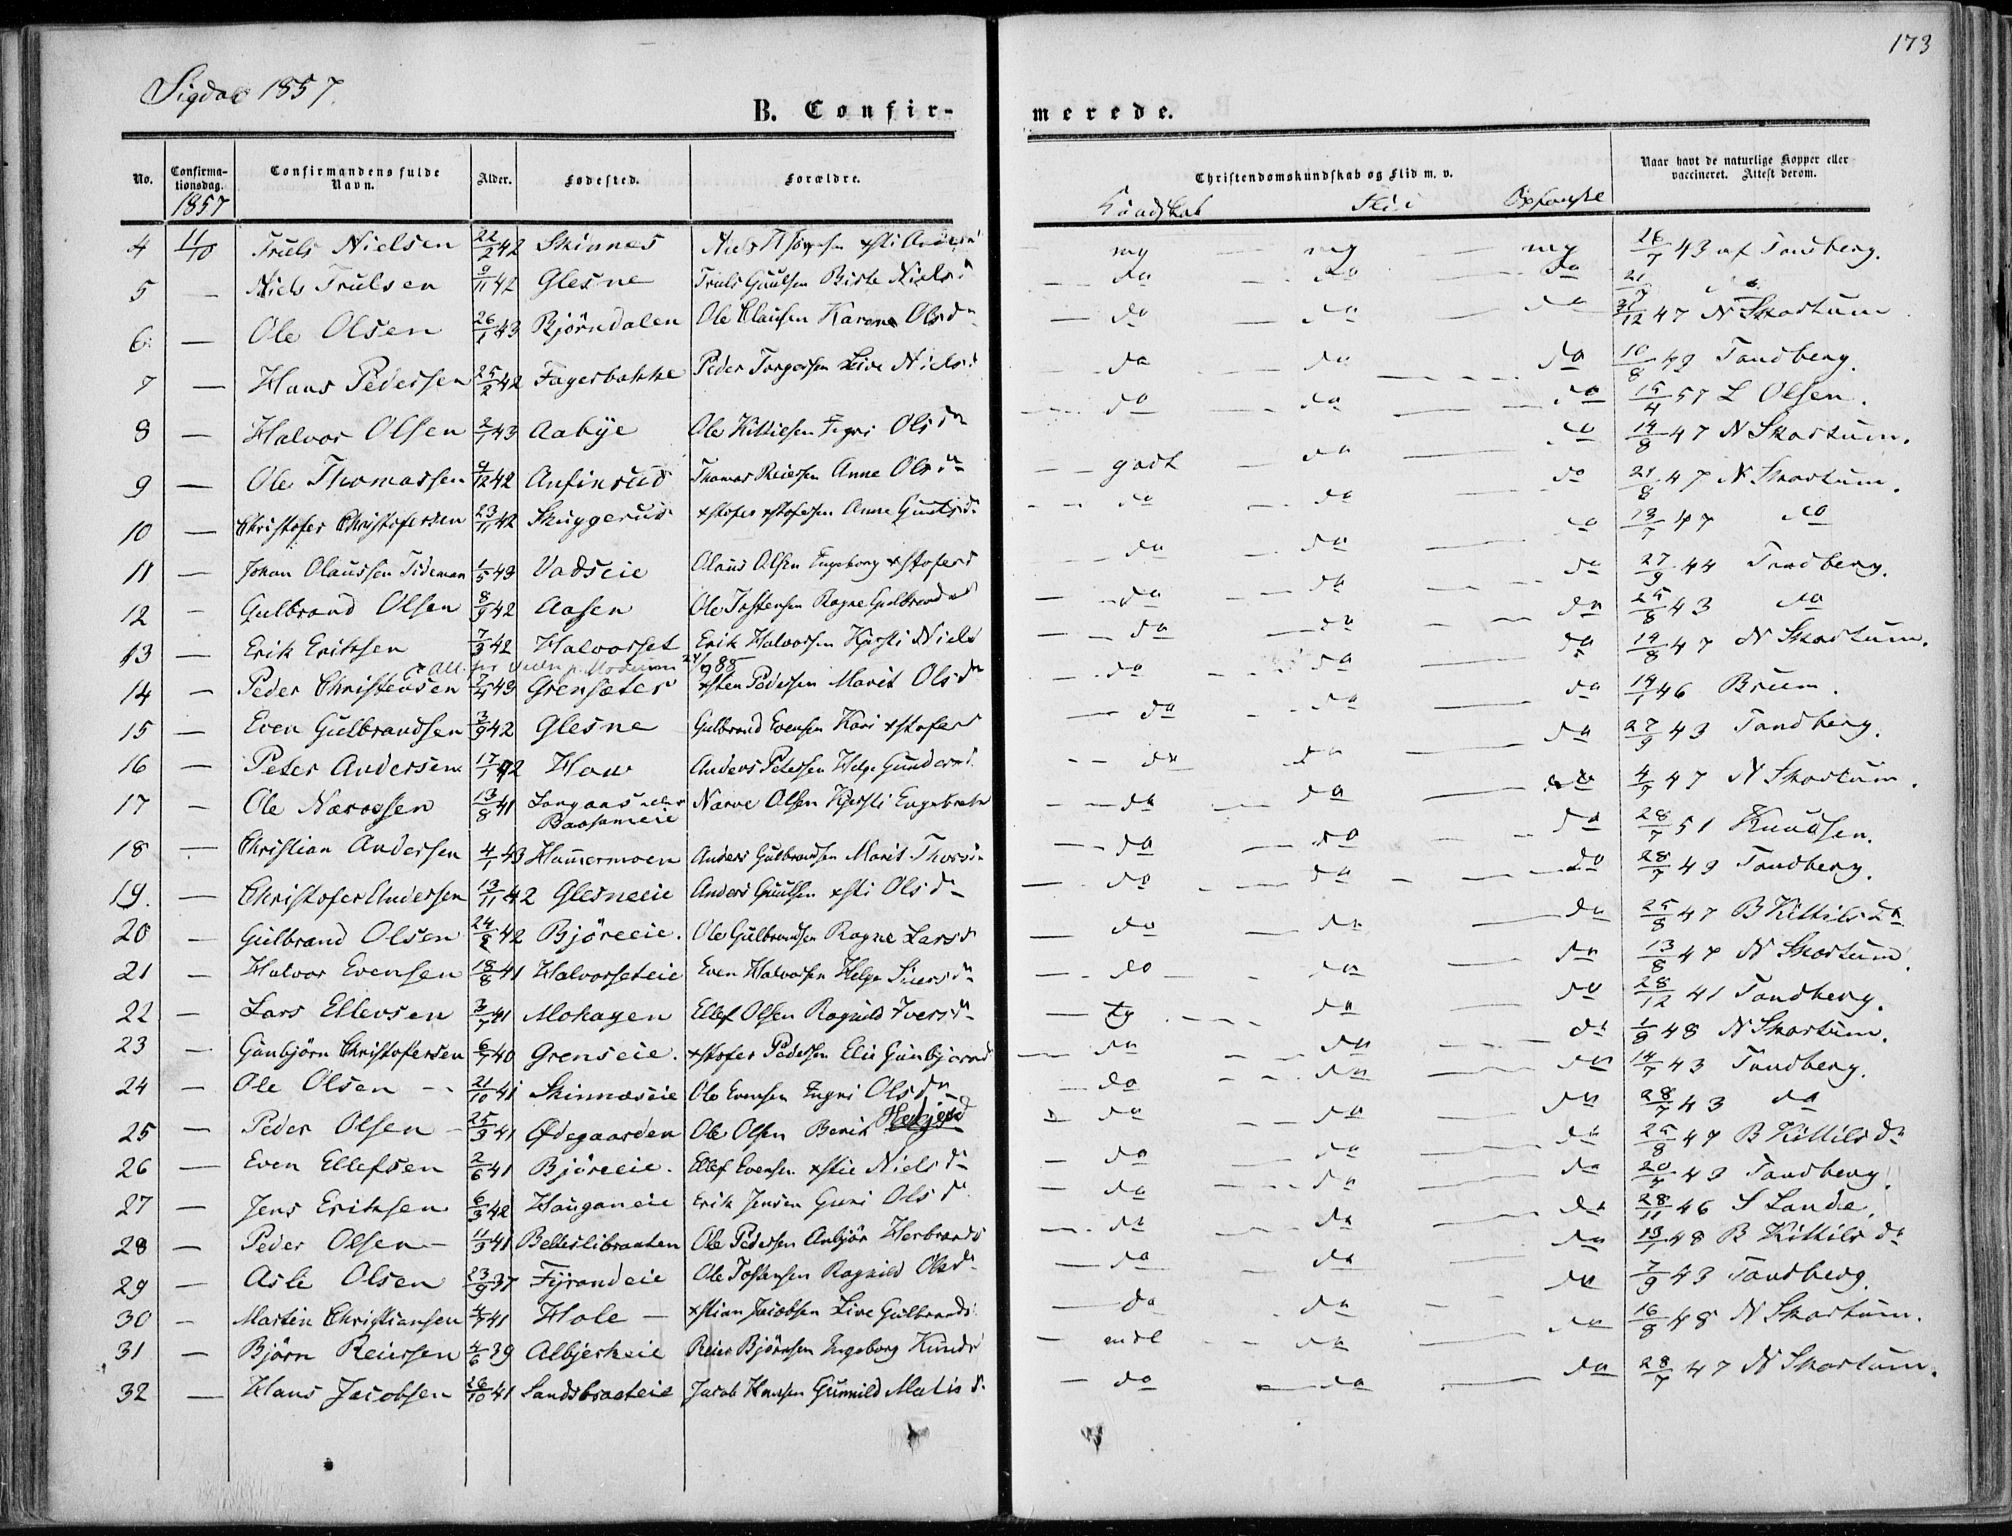 173
Sigdal 1857.
B. Confir-
merede.
No. Confirma-tionsdag. Confirmandens fulde Navn. Alder. Fødested. Forældre. Christendomskundskab og Flid m. v. Naar havt de naturlige Kopper eller vaccineret. Attest derom.
1857 Kundskab Flid Opførsel
4 11/10 Truls Nielsen 22/2 42 Skinnes mg mg mg 26/7 43 af Tandberg.
5 — Niels Trulsen 9/11 42 Glesne Truls Guulsen Birte Nielsd do do do 21/7 do
6 — Ole Olsen 26/1 43 Bjørndalen Ole Clausen Karen Olsdr do do do 3/12 47 N Skartum
7 — Hans Pedersen 25/2 42 Fagerbakke Peder Torgersen Live Nielsd do do do 10/8 49 Tandberg.
8 — Halvor Olsen 2/1 43 Aabye Ole Kittilsen Ingri Olsdr do do do 15/4 57 L Olsen.
9 — Ole Thomassen 9/12 42 Anfinrud Thomas Reiersen Anne Olsdr godt do do 14/8 47 N Skartum.
10 — Christofer Christofersen 23/11 42 Skuggerud xstofer xstofersen Anne Gulsd. do do do 21/8 47 N Skartum.
11 — Johan Olaussen Tideman 1/5 43 Vadseie Olaus Olsen Ingeborg xstofersd do do do 13/7 47 do
12 — Gulbrand Olsen 8/9 42 Aasen Ole Jostensen Ragne Gulbrandsd do do do 27/9 44 Tandberg.
13 — Erik Eriksen 7/3 42 Halvorset Erik Halvorsen Kjersti Nielsd do do do 25/8 43 do
14 — Peder Christensen 7/4 43 Grensæter xsten Pedersen Marit Olsdr do do do 14/8 47 N Skartum.
15 — Even Gulbrandsen 3/9 42 Glesne Gulbrand Evensen Kari xstofersd do do do 14/1 46 Bruun.
16 — Peter Andersen 17/1 42 How Anders Petersen Helge Gundersd. do do do 27/9 43 Tandberg.
17 — Ole Narvesen 13/8 41 Langaas eller Baasumeie Narve Olsen Kjersti Engebretsd do do do 4/7 47 N Skartum.
18 — Christian Andersen 4/1 43 Hammermoen Anders Gulbrandsen Marit Thorsdr do do do 28/7 51 Knudsen.
19. — Christofer Andersen 13/11 42 Glesneeie Anders Guulsen xsti Olsdr do do do 28/7 49 Tandberg.
20 — Gulbrand Olsen 24/8 42 Bjøreeie. Ole Gulbrandsen Ragne Larsd do do do 25/8 47 B Kittilsdr
21 — Halvor Evensen 18/8 41 Halvorseteie Even Halvorsen Helge Siversdr do do do 13/8 47 N Skartum.
22 — Lars Ellevsen 3/7 41 Mohagen Ellef Olsen Ragnild Iversdr tg do do 28/12 41 Tandberg.
23 — Gunbjørn Christofersen 6/7 40 Grenseie. xstofer Pedersen Elie Gunbjørnsd do do do 1/9 48 N Skartum.
24 — Ole Olsen 21/10 41 Skinnæseie Ole Evensen Ingri Olsdr do do do 14/7 43 Tandberg.
25 — Peder Olsen 25/3 41 Ødegaarden Ole Olsen Berit do do do 28/7 43 do
26 — Even Ellefsen 2/6 41 Bjøreeie. Ellef Evensen xstie Nielsdr do do do 25/8 47 B Kittilsdr
27 — Jens Eriksen 6/3 42 Hauganeie Erik Jensen Guri Olsdr do do do 20/7 43 Tandberg.
28 — Peder Olsen 11/3 41 Belleslibraaten Ole Pedersen Anbjør Herbrandsd do do do 28/11 46 S Lande.
29 — Asle Olsen 23/9 37 Fyrandeie Ole Jostensen Ragnild Olsdr do do do 13/1 48 B Kittilsdr
30 — Martin Christiansen 4/7 41 Hole xstian Jacobsen Live Gulbrandsd. do do do 7/9 43 Tandberg.
31 — Bjørn Reiersen 4/6 39 Albjerkeie Reier Bjørnsen Ingeborg Knudsd mdl do do 16/8 48 N Skartum.
32 — Hans Jacobsen 26/10 41 Sandsbraateie Jacob Hansen Gunnild Matisdr do do do 28/7 47 N Skartum.